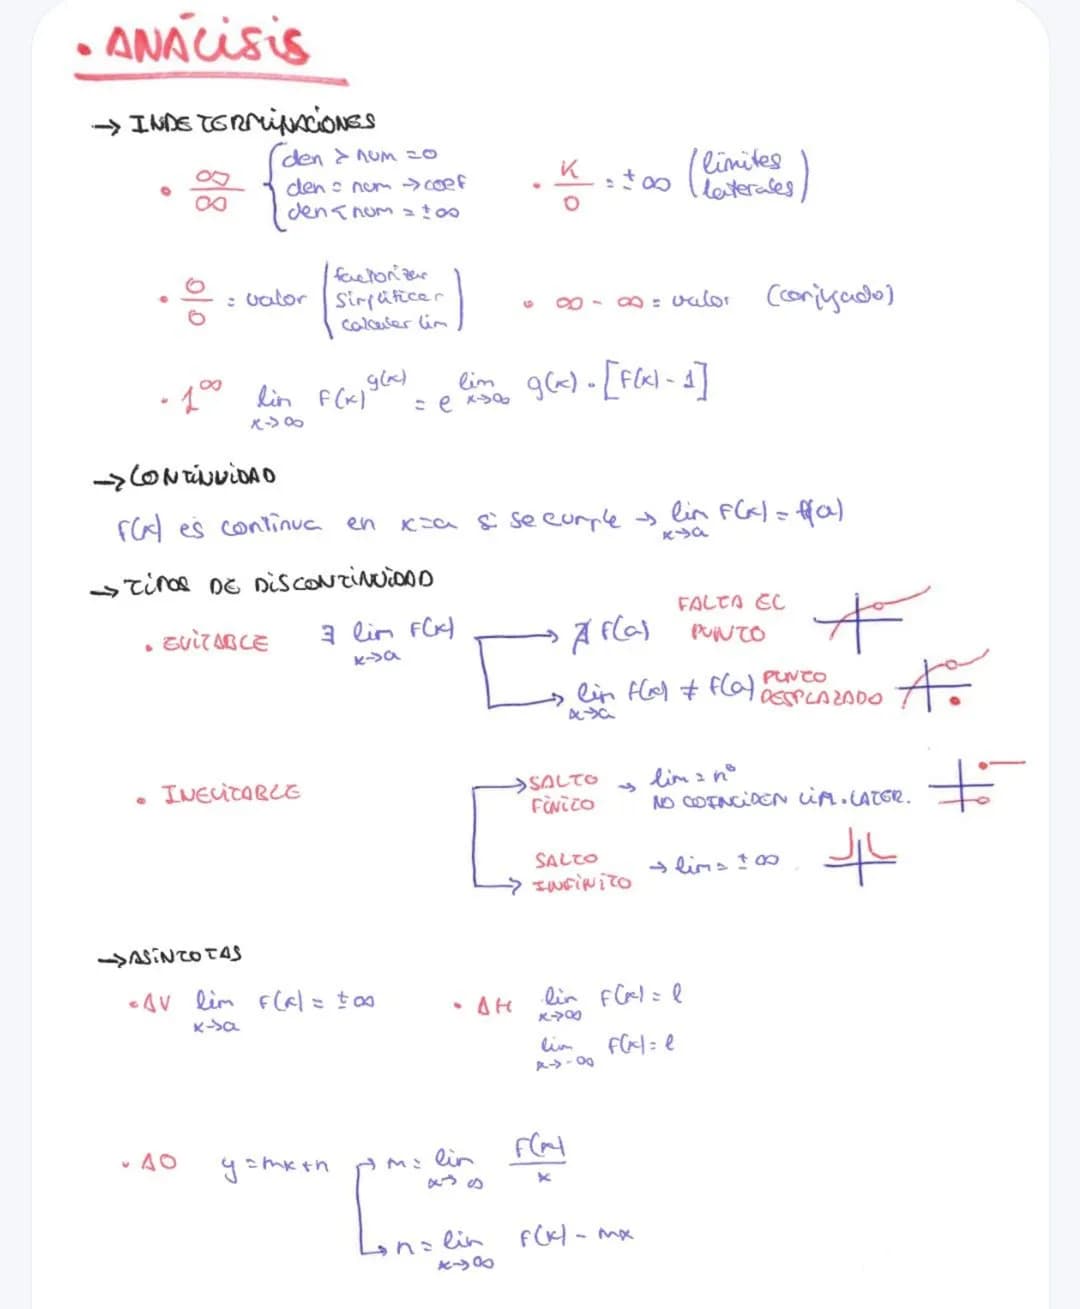 • ANÁLISIS
→ INDETERMINACIONES
• ∞/∞ { den > num = 0
den = num → coef
den < num = ±∞
• K/0 = ±∞ (límites laterales)
• 0/0 = valor (factorizar
simplificar
calcular lim)
• ∞ - ∞ = valor (conjugado)
• 1^∞ lim x→∞ F(x)^g(x) = e^ lim x→∞ g(x) · [F(x) - 1]
→ CONTINUIDAD
F(x) es continua en x=a si se cumple → lim x→a F(x) = f(a)
→ TIPOS DE DISCONTINUIDAD
• EVITABLE ∃ lim x→a F(x) → ∄ f(a) FALTA EL PUNTO
→ lim x→a f(x) ≠ f(a) PUNTO DESPLAZADO
• INEVITABLE → SALTO FINITO → lim = nº
NO COINCIDEN LIM. LATER.
→ SALTO INFINITO → lim = ±∞
→ ASÍNTOTAS
• AV lim x→a F(x) = ±∞
• AH lim x→∞ F(x) = l
lim x→-∞ F(x) = l
• AO y = mx+n → m = lim x→∞ F(x)/x
→ n = lim x→∞ F(x) - mx